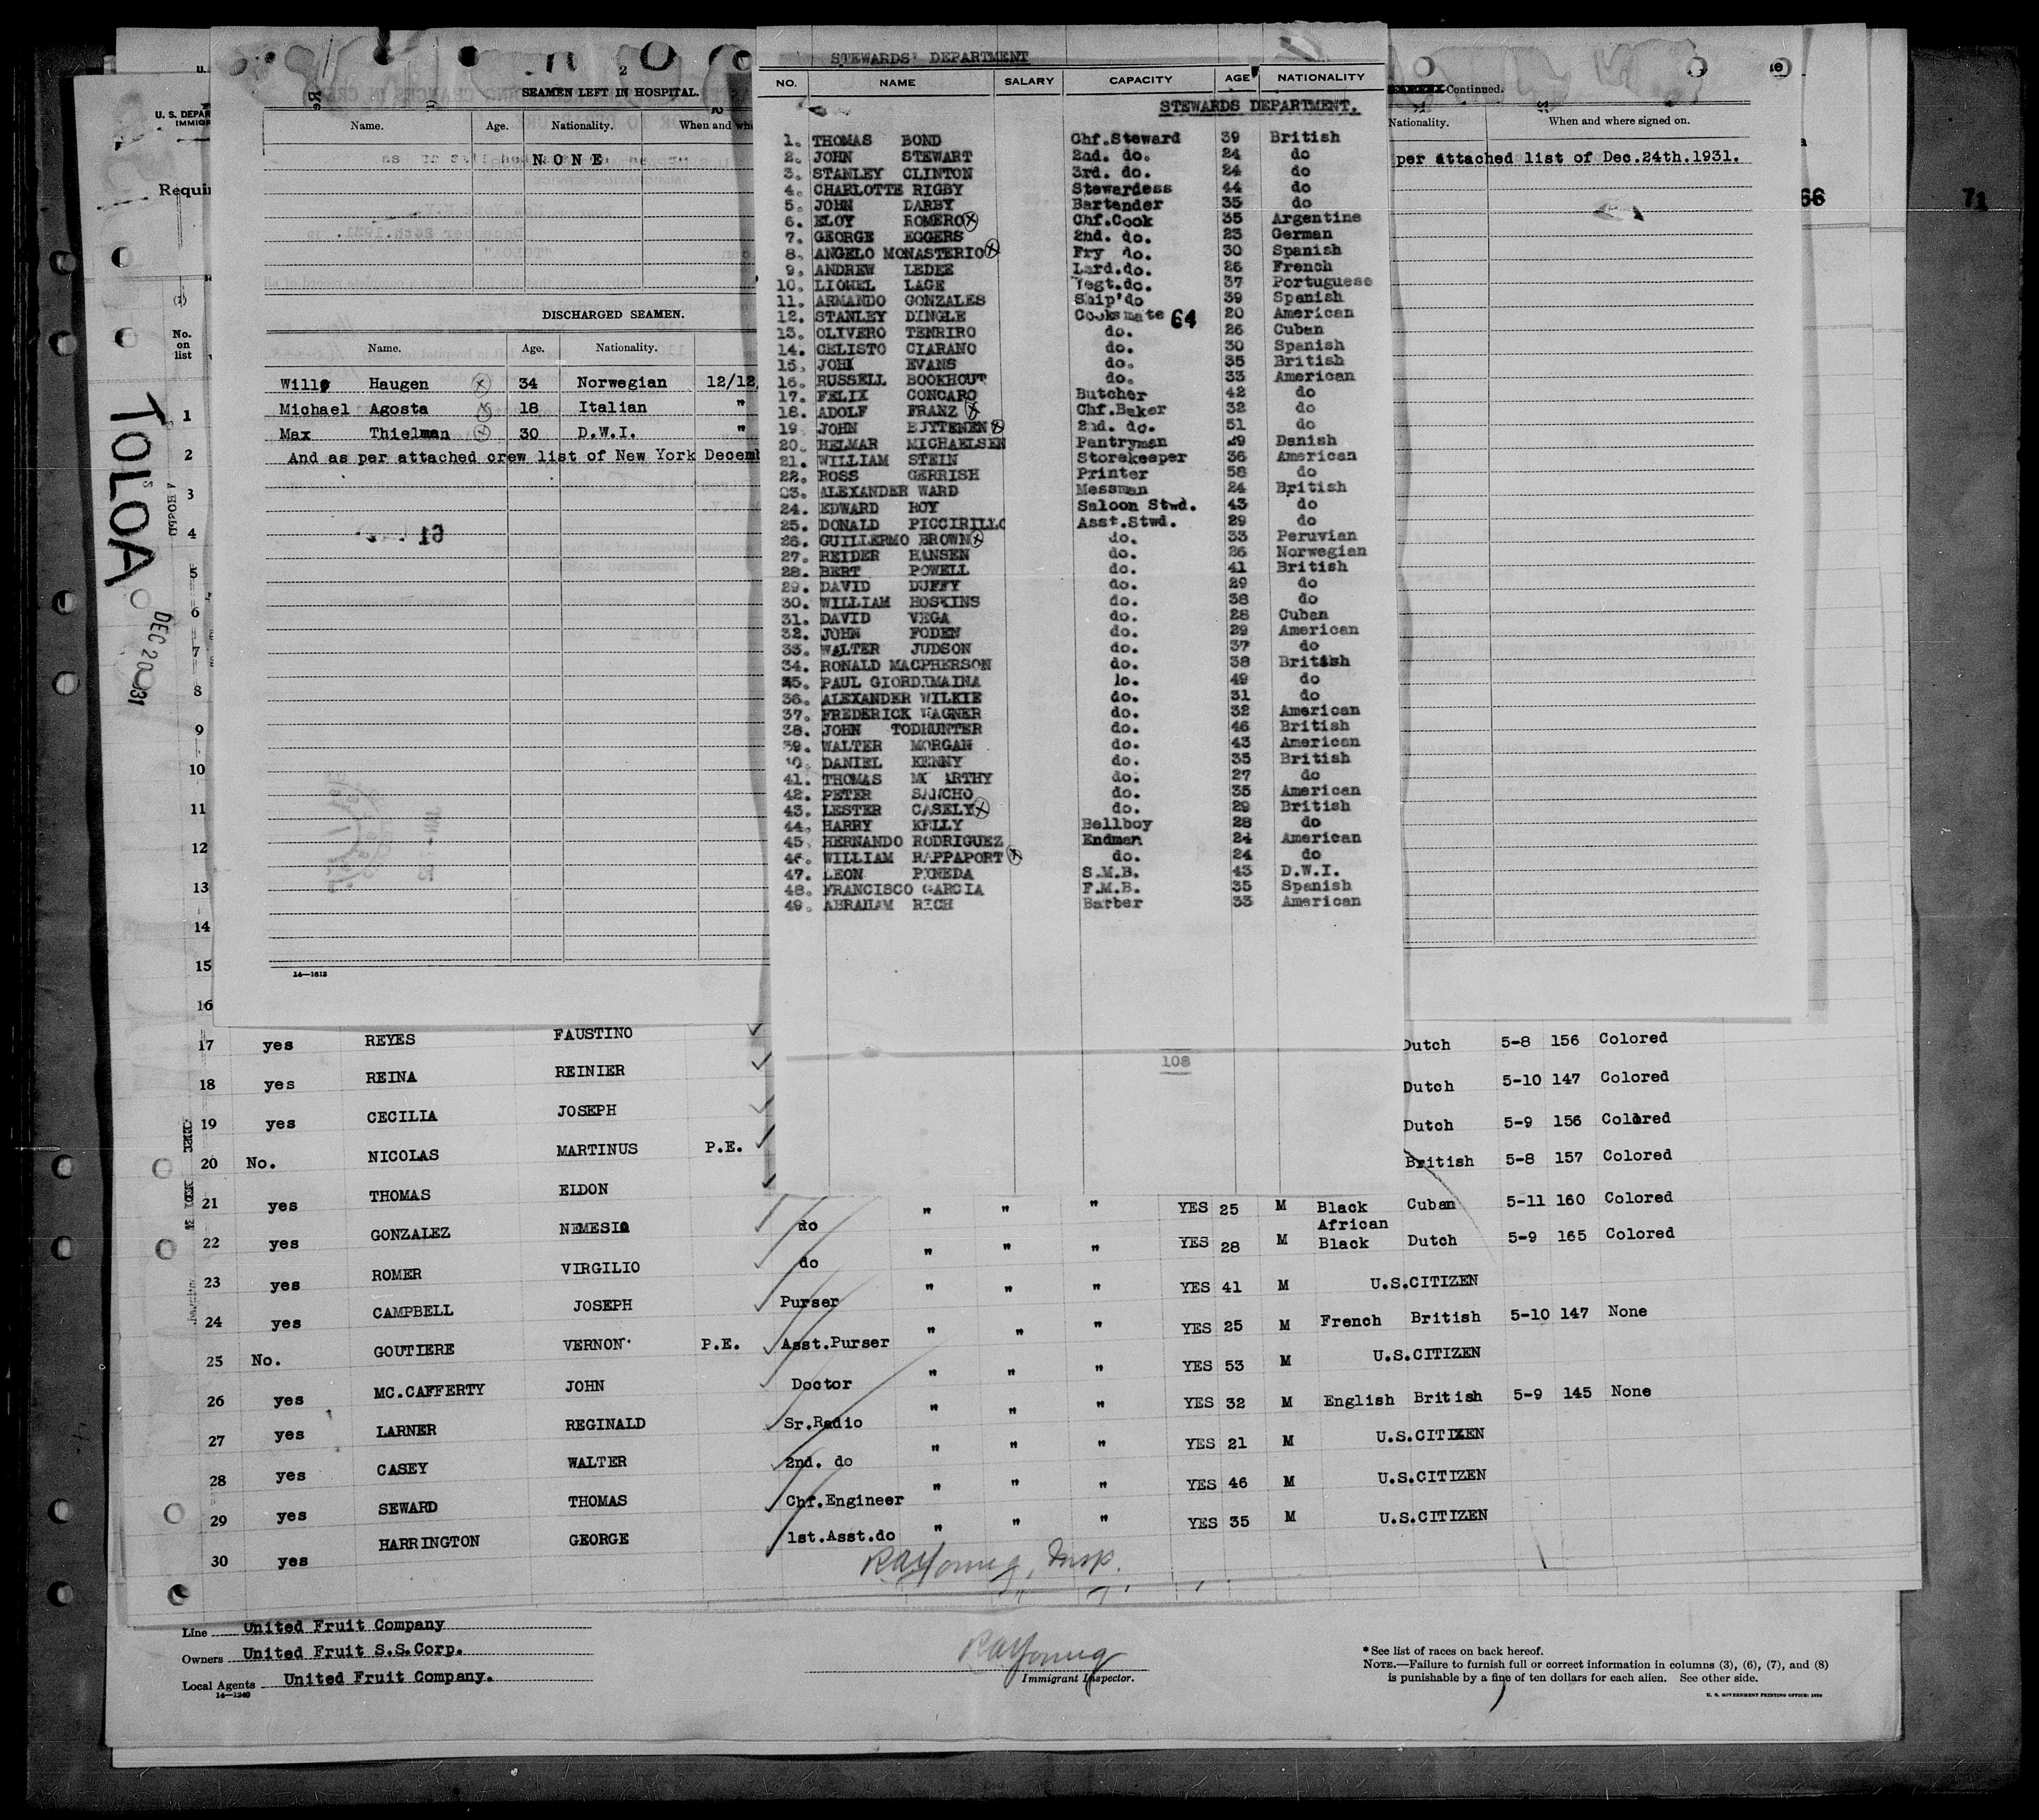 STEWARDS' DEPARTMENT
NO. NAME SALARY CAPACITY AGE NATIONALITY
STEWARDS DEPARTMENT.
1. THOMAS BOND Chf.Steward 39 British
2. JOHN STEWART 2nd. do. 24 do
3. STANLEY CLINTON 3rd. do. 24 do
4. CHARLOTTE RIGBY Stewardess 44 do
5. JOHN DARBY Bartender 35 do
6. ELOY ROMERO Chf.Cook 35 Argentine
7. GEORGE EGGERS 2nd. do. 23 German
8. ANGELO MONASTERIO Fry do. 30 Spanish
9. ANDREW LEDEE Lard.do. 26 French
10. LIONEL LAGE Vegt.do. 37 Portuguese
11. ARMANDO GONZALES Ship'do 39 Spanish
12. STANLEY DINGLE Cooksmate 64 20 American
13. OLIVERO TENRIRO do. 26 Cuban
14. CELISTO CIARANO do. 30 Spanish
15. JOHN EVANS do. 35 British
16. RUSSELL BOOKHOUT do. 33 American
17. FELIX CONCARO Butcher 42 do
18. ADOLF FRANZ Chf.Baker 32 do
19. JOHN BUYTENEN 2nd. do. 51 do
20. HELMAR MICHAELSEN Pantryman 29 Danish
21. WILLIAM STEIN Storekeeper 36 American
22. ROSS GERRISH Printer 58 do
23. ALEXANDER WARD Messman 24 British
24. EDWARD HOY Saloon Stwd. 43 do
25. DONALD PICCIRILLO Asst.Stwd. 29 do
26. GUILLERMO BROWN do. 33 Peruvian
27. REIDER HANSEN do. 26 Norwegian
28. BERT POWELL do. 41 British
29. DAVID DUFFY do. 29 do
30. WILLIAM HOSKINS do. 38 do
31. DAVID VEGA do. 28 Cuban
32. JOHN FODEN do. 29 American
33. WALTER JUDSON do. 37 do
34. RONALD MACPHERSON do. 38 British
35. PAUL GIORDEMAINA do. 49 do
36. ALEXANDER WILKIE do. 31 do
37. FREDERICK WAGNER do. 32 American
38. JOHN TODHUNTER do. 46 British
39. WALTER MORGAN do. 43 American
40. DANIEL KENNY do. 35 British
41. THOMAS MC ARTHY do. 27 do
42. PETER SANCHO do. 35 American
43. LESTER CASELY do. 29 British
44. HARRY KELLY Bellboy 28 do
45. HERNANDO RODRIGUEZ Endman 24 American
46. WILLIAM RAPPAPORT do. 24 do
47. LEON PINEDA S.M.B. 43 D.W.I.
48. FRANCISCO GARCIA F.M.B. 35 Spanish
49. ABRAHAM RICH Barber 33 American
108
2
SEAMEN LEFT IN HOSPITAL.
Name. Age. Nationality. When and
NONE
DISCHARGED SEAMEN.
Name. Age. Nationality.
Haugen 34 Norwegian 12/12
Michael Agosta 18 Italian "
Max Thielman 30 D.W.I. "
And as per attached crew list of New York Decem
14—1613
Continued.
Nationality. When and where signed on.
per attached list of Dec.24th.1931.
66
71
U. S. DEPAR
IMMIG
Requi
(1)
No.
on
list
TOLOA
DEC 20 1931
1
2
3
4
5
6
7
8
9
10
11
12
13
14
15
16
17 yes REYES FAUSTINO Dutch 5-8 156 Colored
18 yes REINA REINIER Dutch 5-10 147 Colored
19 yes CECILIA JOSEPH Dutch 5-9 156 Colored
20 No. NICOLAS MARTINUS P.E. British 5-8 157 Colored
21 yes THOMAS ELDON " " " YES 25 M Black Cuban 5-11 160 Colored
22 yes GONZALEZ NEMESIO do " " " YES 28 M African Black Dutch 5-9 165 Colored
23 yes ROMER VIRGILIO do " " " YES 41 M U.S.CITIZEN
24 yes CAMPBELL JOSEPH Purser " " " YES 25 M French British 5-10 147 None
25 No. GOUTIERE VERNON P.E. Asst.Purser " " " YES 53 M U.S.CITIZEN
26 yes MC.CAFFERTY JOHN Doctor " " " YES 32 M English British 5-9 145 None
27 yes LARNER REGINALD Sr.Radio " " " YES 21 M U.S.CITIZEN
28 yes CASEY WALTER 2nd. do " " " YES 46 M U.S.CITIZEN
29 yes SEWARD THOMAS Chf.Engineer " " " YES 35 M U.S.CITIZEN
30 yes HARRINGTON GEORGE 1st.Asst.do
RAYoung, Insp.
Line United Fruit Company
Owners United Fruit S.S.Corp.
Local Agents United Fruit Company.
14—1240
RAYoung
Immigrant Inspector.
*See list of races on back hereof.
NOTE.—Failure to furnish full or correct information in columns (3), (6), (7), and (8)
is punishable by a fine of ten dollars for each alien. See other side.
U. S. GOVERNMENT PRINTING OFFICE: 1930